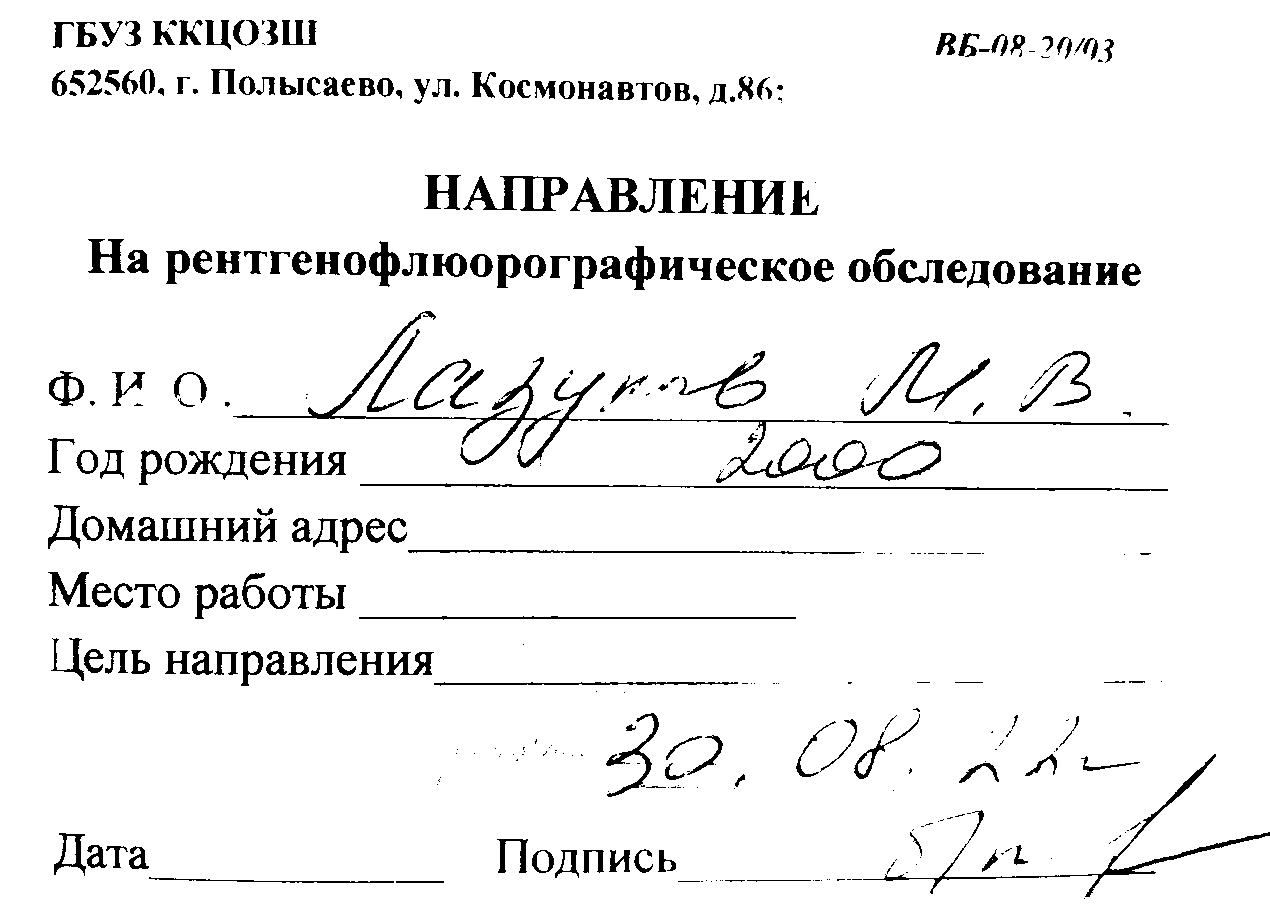 ГБУЗ ККЦОЗШ
ВБ-08-20/03
652560, г. Полысаево, ул. Космонавтов, д.86;
НАПРАВЛЕНИЕ
На рентгенофлюорографическое обследование
Ф. И О . Лазуков М. В.
Год рождения 2000
Домашний адрес
Место работы
Цель направления
30. 08. 22г
Дата Подпись